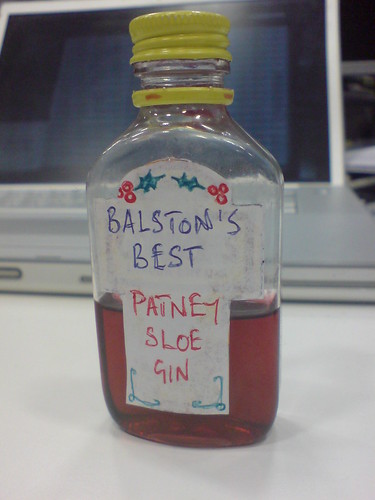 BALSTON'S
BEST
PATNEY
SLOE
GIN